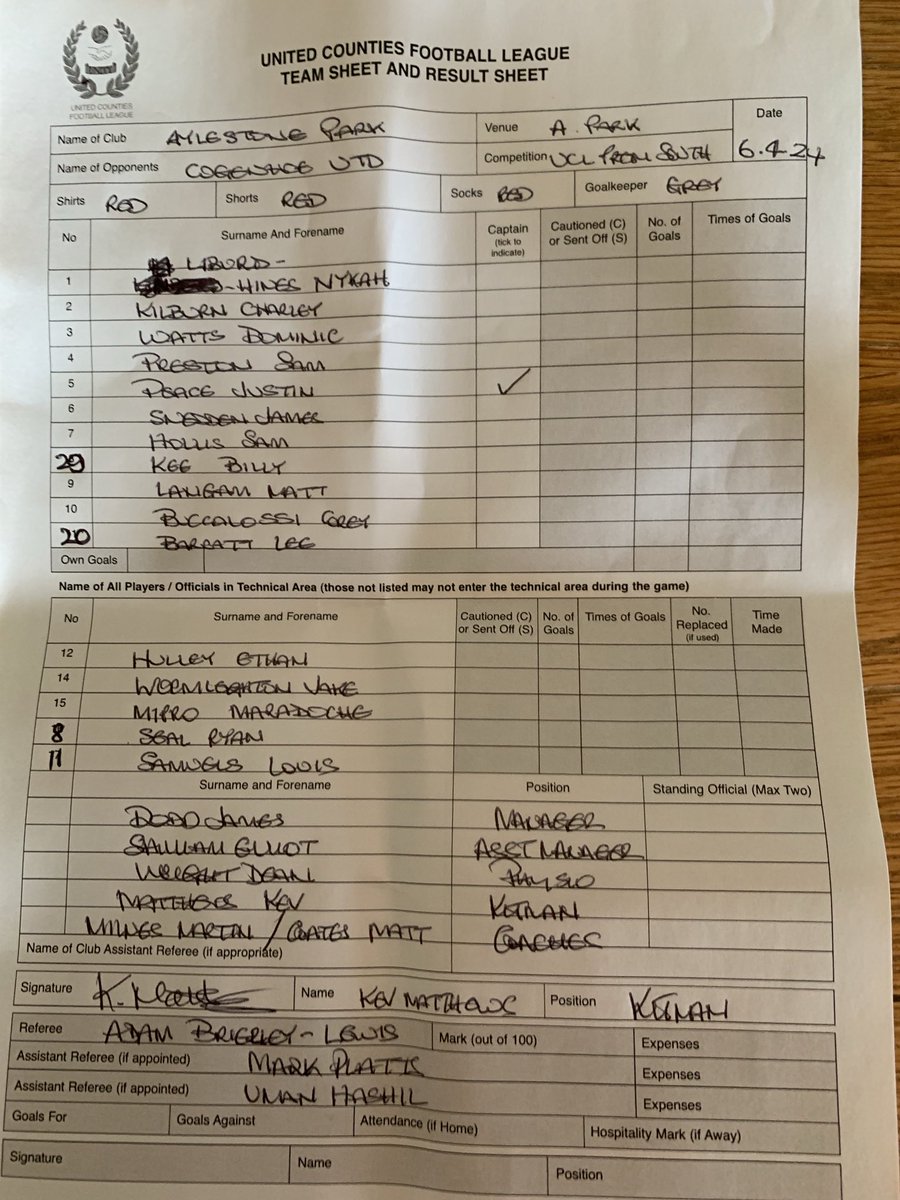 UNITED COUNTIES FOOTBALL LEAGUE
TEAM SHEET AND RESULT SHEET
UNITED COUNTIES
FOOTBALL LEAGUE
Name of Club AYLESTONE PARK Venue A. PARK Date
Name of Opponents COGENHOE UTD Competition UCL PREM SOUTH 6.4.24
Shirts RED Shorts RED Socks RED Goalkeeper GREY
No Surname And Forename Captain (tick to indicate) Cautioned (C) or Sent Off (S) No. of Goals Times of Goals
LIBURD-
1 -HINES NYKAH
2 KILBURN CHARLEY
3 WATTS DOMINIC
4 PRESTON SAM
5 PEACE JUSTIN ✓
6 SNEDDEN JAMES
7 HOLLIS SAM
29 KEE BILLY
9 LANGAM MATT
10 BUCCALOSSI COREY
20 BARRATT LEE
Own Goals
Name of All Players / Officials in Technical Area (those not listed may not enter the technical area during the game)
No Surname and Forename Cautioned (C) or Sent Off (S) No. of Goals Times of Goals No. Replaced (if used) Time Made
12 HULLEY ETHAN
14 WORMLEIGHTON JAKE
15 MIPRO MARADOCHE
8 SEAL RYAN
11 SAMUELS LOUIS
Surname and Forename Position Standing Official (Max Two)
DODD JAMES MANAGER
ELLIOT ASST MANAGER
WRIGHT DEAN PHYSIO
MATTHEWS KEV KITMAN
MILNES MARTIN / COATES MATT COACHES
Name of Club Assistant Referee (if appropriate)
Signature Name KEV MATTHEWS Position KITMAN
Referee ADAM BRIERLEY-LEWIS Mark (out of 100) Expenses
Assistant Referee (if appointed) MARK PLATTS Expenses
Assistant Referee (if appointed) UMAN HASHIL Expenses
Goals For Goals Against Attendance (if Home) Hospitality Mark (if Away)
Signature Name Position